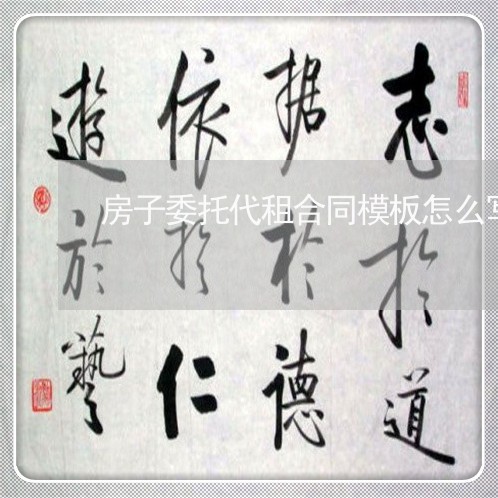 志於道
据於德
依於仁
遊於藝
房子委托代租合同模板怎么